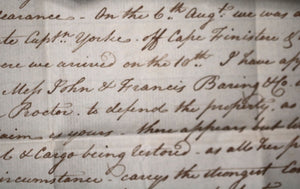 clearance - On the 6th Augt. we was
te Captn. Yorke. off Cape Finistere &
ere we arrived on the 10th. I have app
Mess John & Francis Baring & Co.
Proctor to defend the property, as
aim is yours - there appears but l
l & Cargo being restored as all her p
ircumstance - carrys the strongest